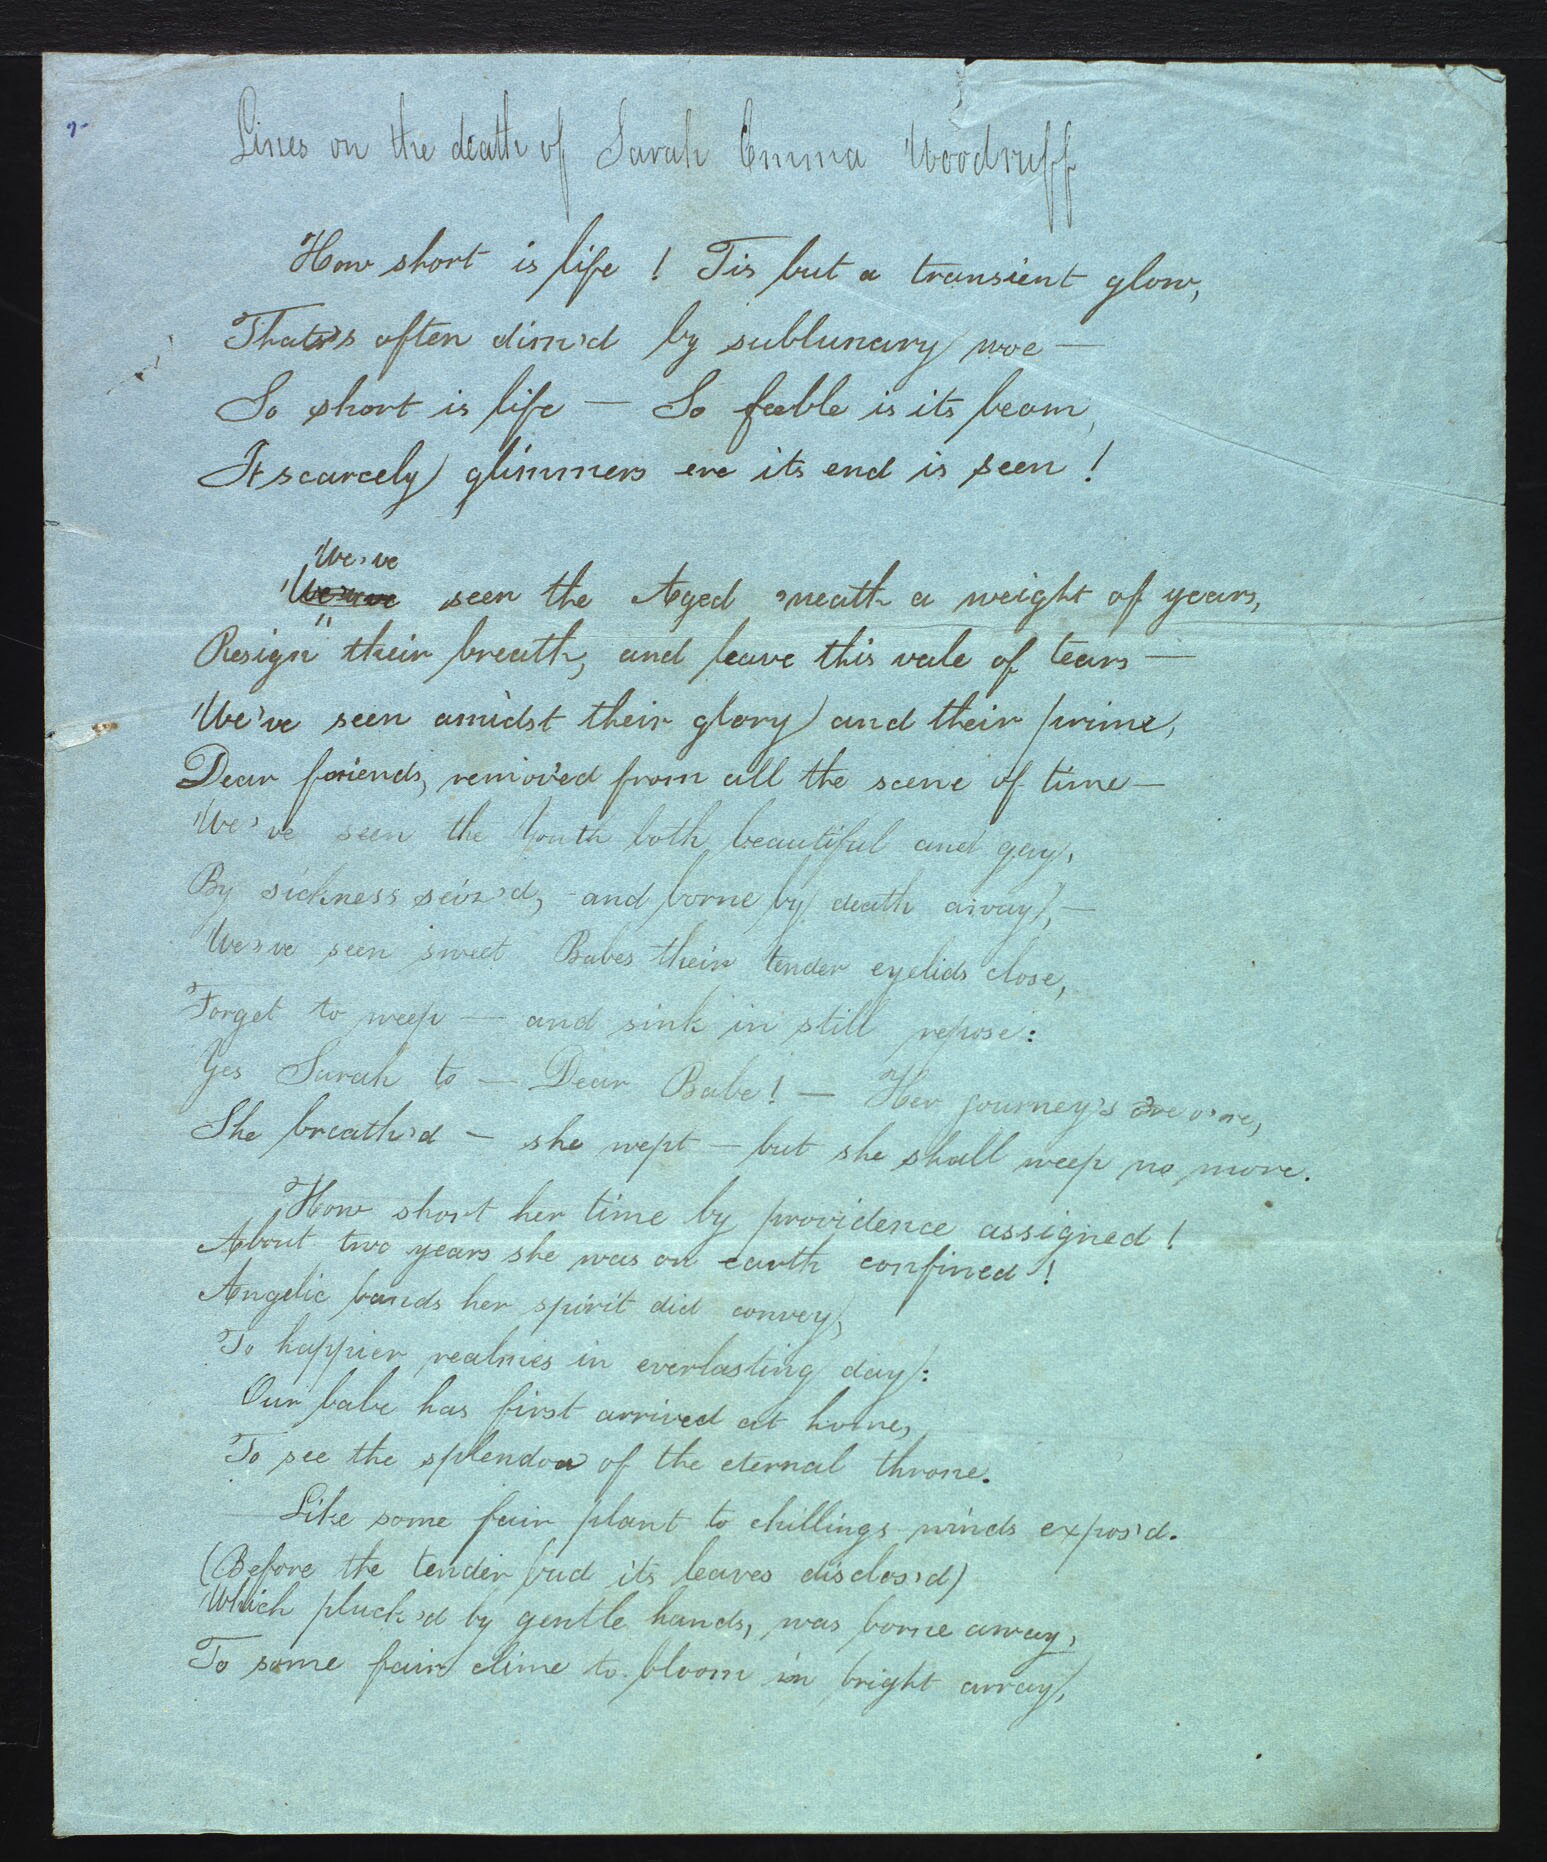 Lines on the death of Sarah Emma Woodruff
How short is life ! Tis but a transient glow,
That's often dim'd by sublunary woe —
So short is life — So feeble is its beam,
It scarcely glimmers ere its end is seen !
We've
seen the Aged 'neath a weight of years,
Resign their breath, and leave this vale of tears —
We've seen amidst their glory and their prime,
Dear friends, remov'd from all the scene of time —
We've seen the Youth both beautiful and gay,
By sickness seiz'd, and borne by death away, —
We've seen sweet Babes their tender eyelids close,
Forget to weep — and sink in still repose:
Yes Sarah to — Dear Babe! — Her journey's o're,
She breath'd — she wept — but she shall weep no more.
How short her time by providence assigned !
About two years she was on earth confined !
Angelic bands her spirit did convey,
To happier realmes in everlasting day:
Our babe has first arrived at home,
To see the splendor of the eternal throne.
Like some fair plant to chillings winds expos'd.
(Before the tender bud its leaves disclos'd)
Which pluck'd by gentle hands, was borne away,
To some fair clime to bloom in bright array,